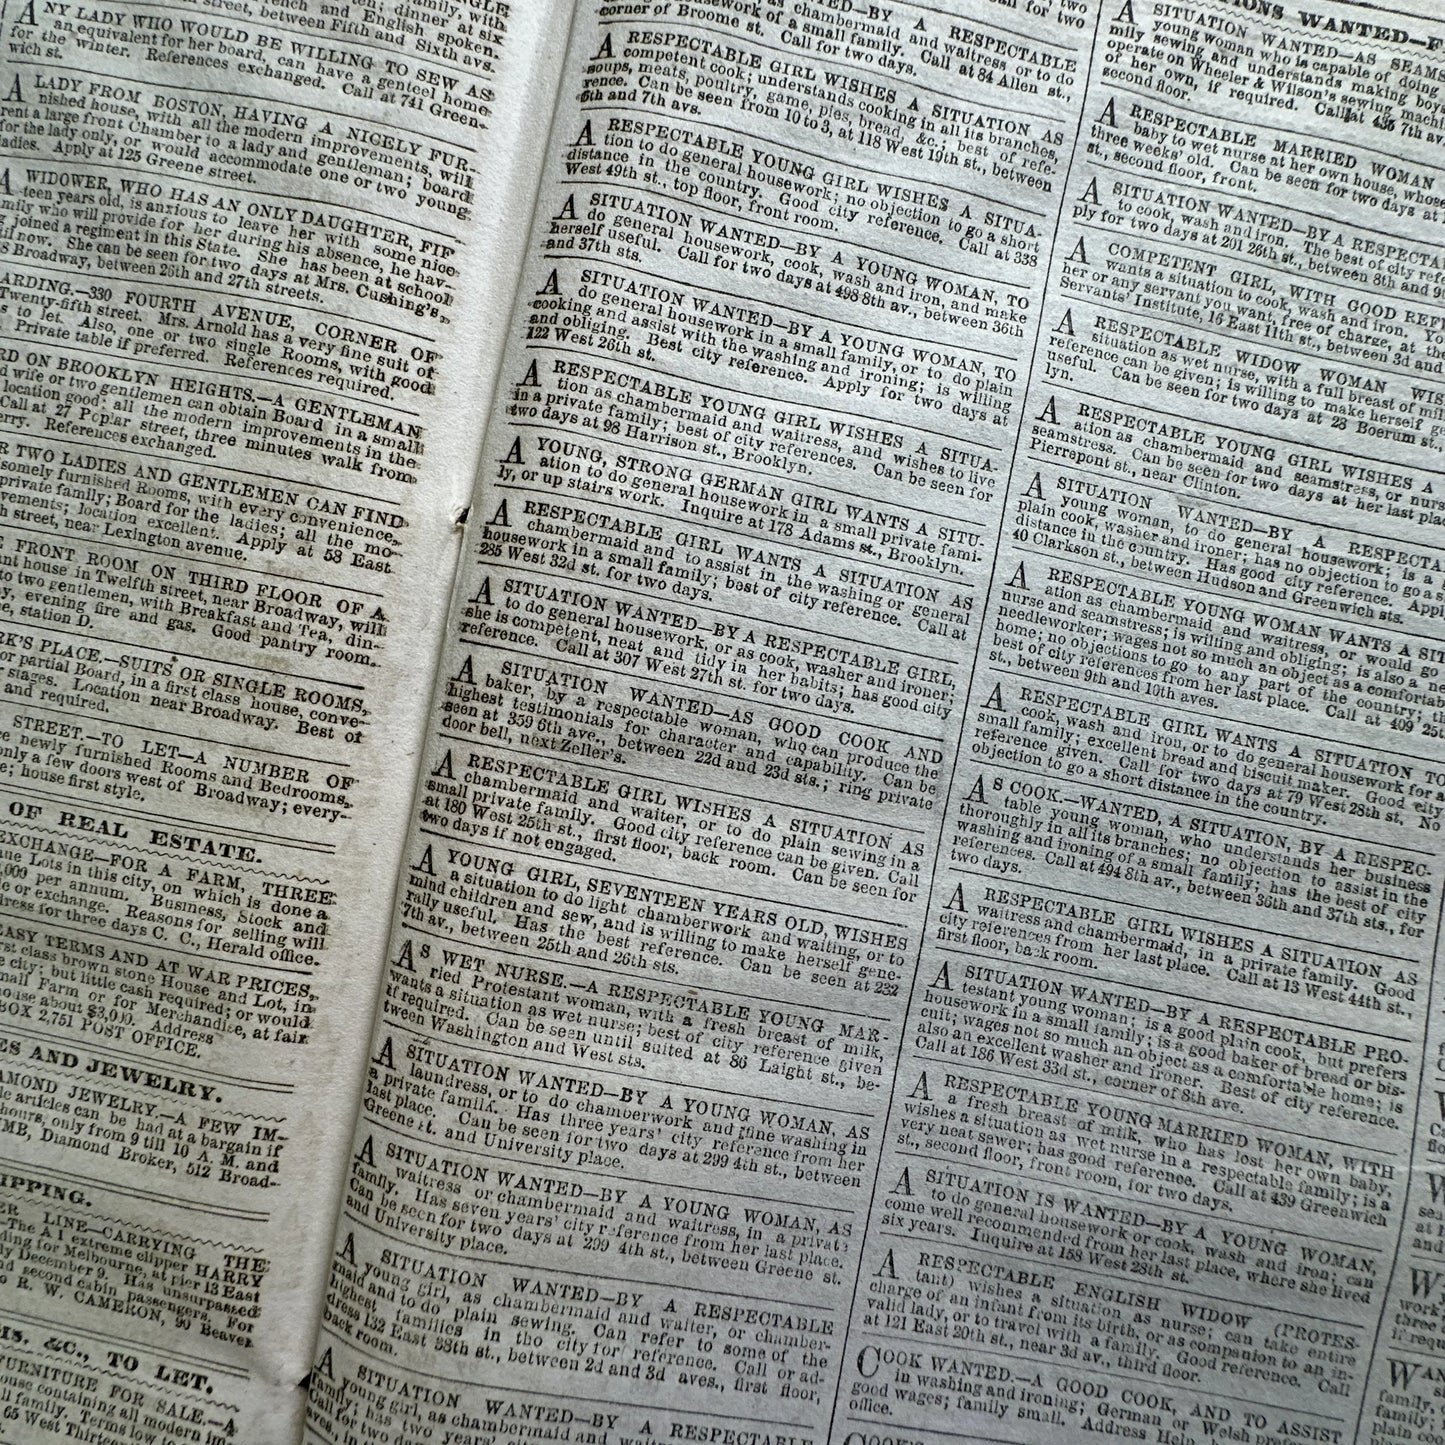 NY LADY WHO WOULD BE WILLING TO SEW AS
an equivalent for her board, can have a genteel home
for the winter. References exchanged. Call at 741 Green-
wich st.
A LADY FROM BOSTON, HAVING A NICELY FUR-
nished house, with all the modern improvements, will
rent a large front Chamber to a lady and gentleman; board
for the lady only, or would accommodate one or two young
ladies. Apply at 125 Greene street.
A WIDOWER, WHO HAS AN ONLY DAUGHTER, FIF
teen years old, is anxious to leave her with some nice
family who will provide for her during his absence, he hav-
joined a regiment in this State. She has been at school
now. She can be seen for two days at Mrs. Cushing's,
Broadway, between 26th and 27th streets.
ARDING.—330 FOURTH AVENUE, CORNER OF
Twenty-fifth street. Mrs. Arnold has a very fine suit of
to let. Also, one or two single Rooms, with good
Private table if preferred. References required.
RD ON BROOKLYN HEIGHTS.—A GENTLEMAN
wife or two gentlemen can obtain Board in a small
location good; all the modern improvements in the
Call at 27 Poplar street, three minutes walk from
erry. References exchanged.
R TWO LADIES AND GENTLEMEN CAN FIND
somely furnished Rooms, with every convenience,
private family; Board for the ladies; all the mo-
vements; location excellent. Apply at 58 East
h street, near Lexington avenue.
FRONT ROOM ON THIRD FLOOR OF A
ant house in Twelfth street, near Broadway, will
to two gentlemen, with Breakfast and Tea, din-
y, evening fire and gas. Good pantry room.
e, station D.
RK'S PLACE.—SUITS OR SINGLE ROOMS,
or partial Board, in a first class house, conve-
stages. Location near Broadway. Best of
and required.
STREET.—TO LET—A NUMBER OF
newly furnished Rooms and Bedrooms,
only a few doors west of Broadway; every-
e; house first style.
OF REAL ESTATE.
EXCHANGE—FOR A FARM, THREE
ue Lots in this city, on which is done a
,000 per annum. Business, Stock and
le or exchange. Reasons for selling will
dress for three days C. C., Herald office.
EASY TERMS AND AT WAR PRICES,
rst class brown stone House and Lot, in
city; but little cash required; or would
mall Farm or for Merchandise, at fair
house about $3,000. Address
BOX 2,751 POST OFFICE.
ES AND JEWELRY.
AMOND JEWELRY.—A FEW IM-
le articles can be had at a bargain if
hours, only from 9 till 10 A. M. and
Diamond Broker, 512 Broad-
IPPING.
ER LINE—CARRYING THE
—The A 1 extreme clipper HARRY
ding for Melbourne, at pier 13 East
ly December 9. Has unsurpassed
nd second cabin passengers. For
o R. W. CAMERON, 90 Beaver
MS, &C., TO LET.
FURNITURE FOR SALE.—A
house containing all modern im-
ll family. Terms low to
65 West Thirteenth
—BY A RESPECTABLE
as chambermaid and waitress or to do
housework of a small family. Call at 84 Allen st.,
corner of Broome st. Call for two days.
A RESPECTABLE GIRL WISHES A SITUATION AS
competent cook; understands cooking in all its branches,
soups, meats, poultry, game, pies, bread, &c.; best of refe-
rence. Can be seen from 10 to 3, at 118 West 19th st., between
6th and 7th avs.
A RESPECTABLE YOUNG GIRL WISHES A SITUA-
tion to do general housework; no objection to go a short
distance in the country. Good city reference. Call at 338
West 49th st., top floor, front room.
A SITUATION WANTED—BY A YOUNG WOMAN, TO
do general housework, cook, wash and iron, and make
herself useful. Call for two days at 498 8th av., between 36th
and 37th sts.
A SITUATION WANTED—BY A YOUNG WOMAN, TO
do general housework in a small family, or to do plain
cooking and assist with the washing and ironing; is willing
and obliging. Best city reference. Apply for two days at
122 West 26th st.
A RESPECTABLE YOUNG GIRL WISHES A SITUA-
tion as chambermaid and waitress, and wishes to live
in a private family; best of city references. Can be seen for
two days at 98 Harrison st., Brooklyn.
A YOUNG, STRONG GERMAN GIRL WANTS A SITU-
ation to do general housework in a small private fami-
ly, or up stairs work. Inquire at 178 Adams st., Brooklyn.
A RESPECTABLE GIRL WANTS A SITUATION AS
chambermaid and to assist in the washing or general
housework in a small family; best of city reference. Call at
285 West 32d st. for two days.
A SITUATION WANTED—BY A RESPECTABLE GIRL,
to do general housework, or as cook, washer and ironer;
she is competent, neat and tidy in her habits; has good city
reference. Call at 307 West 27th st. for two days.
A SITUATION WANTED—AS GOOD COOK AND
baker, by a respectable woman, who can produce the
highest testimonials for character and capability. Can be
seen at 359 6th ave., between 22d and 23d sts.; ring private
door bell, next Zeller's.
A RESPECTABLE GIRL WISHES A SITUATION AS
chambermaid and waiter, or to do plain sewing in a
small private family. Good city reference can be given. Call
at 180 West 25th st., first floor, back room. Can be seen for
two days if not engaged.
A YOUNG GIRL, SEVENTEEN YEARS OLD, WISHES
a situation to do light chamberwork and waiting, or to
mind children and sew, and is willing to make herself gene-
rally useful. Has the best reference. Can be seen at 232
7th av., between 25th and 26th sts.
AS WET NURSE.—A RESPECTABLE YOUNG MAR-
ried Protestant woman, with a fresh breast of milk,
wants a situation as wet nurse; best of city reference given
if required. Can be seen until suited at 86 Laight st., be-
tween Washington and West sts.
A SITUATION WANTED—BY A YOUNG WOMAN, AS
laundress, or to do chamberwork and fine washing in
a private family. Has three years' city reference from her
last place. Can be seen for two days at 299 4th st., between
Greene st. and University place.
A SITUATION WANTED—BY A YOUNG WOMAN, AS
waitress or chambermaid and waitress, in a private
family. Has seven years' city reference from her last place.
Can be seen for two days at 299 4th st., between Greene st.
and University place.
A SITUATION WANTED—BY A RESPECTABLE
young girl, as chambermaid and waiter, or chamber-
maid and to do plain sewing. Can refer to some of the
highest families in the city for reference. Call or ad-
dress 132 East 38th st., between 2d and 3d aves., first floor,
back room.
A SITUATION WANTED—BY A RESPECTABLE
young girl, as chambermaid and waitress
family; has two years' city
Call for two
TIONS WANTED—F
A SITUATION WANTED—AS SEAMS
young woman who is capable of doing
mily sewing and understands making boys
operate on Wheeler & Wilson's sewing machi
of her own, if required. Call at 435 7th av
second floor.
A RESPECTABLE MARRIED WOMAN
baby to wet nurse at her own house, whose
three weeks' old. Can be seen for two days at
st., second floor, front.
A SITUATION WANTED—BY A RESPECTA
to cook, wash and iron. The best of city refe
ply for two days at 201 26th st., between 8th and 9
A COMPETENT GIRL, WITH GOOD REF
wants a situation to cook, wash and iron. Yo
her or any servant you want, free of charge, at the
Servants' Institute, 16 East 11th st., between 3d and
A RESPECTABLE WIDOW WOMAN WIS
situation as wet nurse, with a full breast of mil
reference can be given; is willing to make herself ge
useful. Can be seen for two days at 23 Boerum st.,
lyn.
A RESPECTABLE YOUNG GIRL WISHES A
ation as chambermaid and seamstress, or nurs
seamstress. Can be seen for two days at her last plac
Pierrepont st., near Clinton.
A SITUATION WANTED—BY A RESPECTA
young woman, to do general housework; is a
plain cook, washer and ironer; has no objection to go a s
distance in the country. Has good city reference. Appl
40 Clarkson st., between Hudson and Greenwich sts.
A RESPECTABLE YOUNG WOMAN WANTS A SIT
ation as chambermaid and waitress, or would go
nurse and seamstress; is willing and obliging; is also a ne
needleworker; wages not so much an object as a comfortab
home; no objections to go to any part of the country; th
best of city references from her last place. Call at 409 25t
st., between 9th and 10th aves.
A RESPECTABLE GIRL WANTS A SITUATION TO
cook, wash and iron, or to do general housework for a
small family; excellent bread and biscuit maker. Good city
reference given. Call for two days at 79 West 28th st. No
objection to go a short distance in the country.
AS COOK.—WANTED, A SITUATION, BY A RESPEC-
table young woman, who understands her business
thoroughly in all its branches; no objection to assist in the
washing and ironing of a small family; has the best of city
references. Call at 494 8th av., between 36th and 37th sts., for
two days.
A RESPECTABLE GIRL WISHES A SITUATION AS
waitress and chambermaid, in a private family. Good
city references from her last place. Call at 13 West 44th st.,
first floor, back room.
A SITUATION WANTED—BY A RESPECTABLE PRO-
testant young woman; is a good plain cook, but prefers
housework in a small family; is a good baker of bread or bis-
cuit; wages not so much an object as a comfortable home; is
also an excellent washer and ironer. Best of city reference.
Call at 186 West 33d st., corner of 8th ave.
A RESPECTABLE YOUNG MARRIED WOMAN, WITH
a fresh breast of milk, who has lost her own baby,
wishes a situation as wet nurse in a respectable family; is a
very neat sewer; has good reference. Call at 439 Greenwich
st., second floor, front room, for two days.
A SITUATION IS WANTED—BY A YOUNG WOMAN,
to do general housework or cook, wash and iron; can
come well recommended from her last place, where she lived
six years. Inquire at 158 West 28th st.
A RESPECTABLE ENGLISH WIDOW (PROTES-
tant) wishes a situation as nurse; can take entire
charge of an infant from its birth, or as companion to an in-
valid lady, or to travel with a family. Good reference. Call
at 121 East 20th st., near 3d av., third floor.
COOK WANTED.—A GOOD COOK, AND TO ASSIST
in washing and ironing; German or Welsh pre
good wages; family small. Address Help
office.